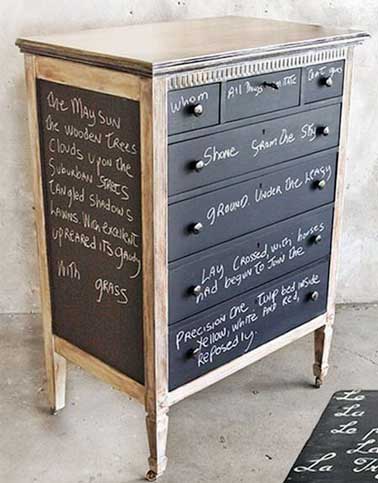 The May Sun
the wooden Trees
Clouds upon the
Suburban Streets
Tangled Shadows
Lawns. With excellent
upreared its gaudy
With grass
Whom
All
Shone from the
ground. Under the
Lay Crossed with horses
had begun to Join the
Precision One Tulip bed inside
Yellow, White and Red,
Reposedly.
Le
Lu
Le
La